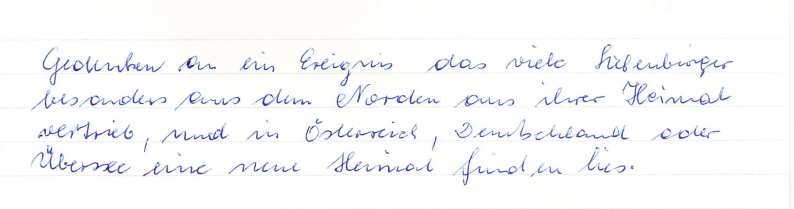 Gedenken an ein Ereignis das viele Siebenbürger
besonders aus dem Norden aus ihrer Heimat
vertrieb, und in Österreich, Deutschland oder
Übersee eine neue Heimat finden lies.